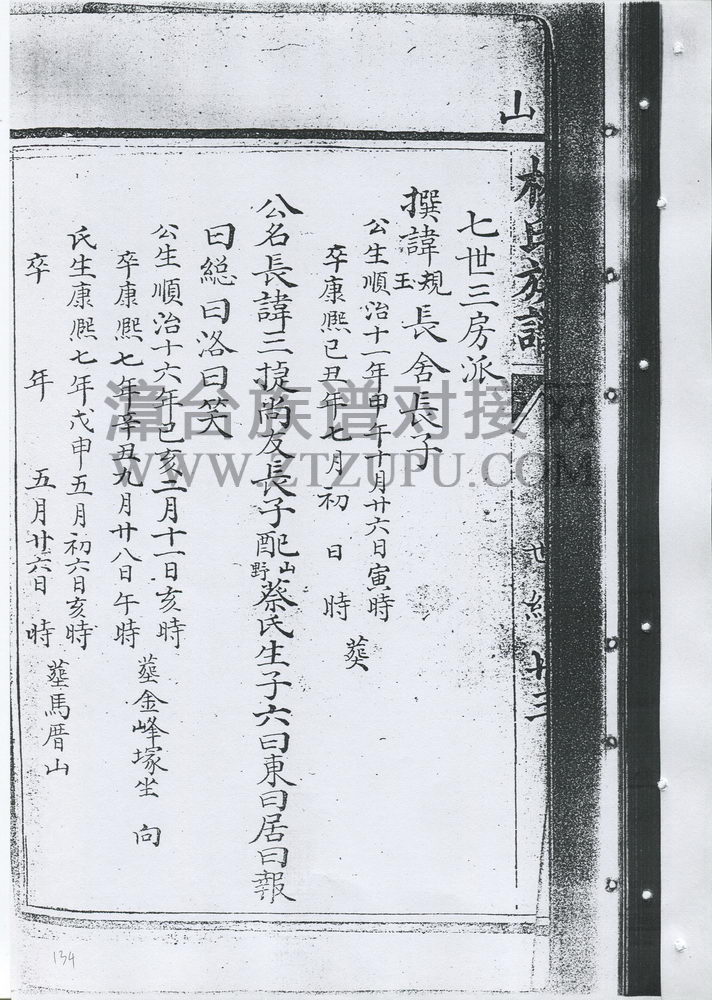 山
林氏族譜
世紀 廿三
七世三房派
撰諱規玉長舍長子
公生順治十一年甲午十月廿六日寅時
卒康熙己丑年七月初 日 時
葬
公名長諱三捷尚友長子配山野蔡氏生子六曰東曰居曰報
曰總曰洛曰笑
公生順治十六年己亥二月十一日亥時
卒康熙七年辛丑九月廿八日午時
葬金峰塚坐 向
氏生康熙七年戊申五月初六日亥時
卒 年 五月廿六日 時
葬馬厝山
漳台族谱对接网
WWW.ZTZUPU.COM
134